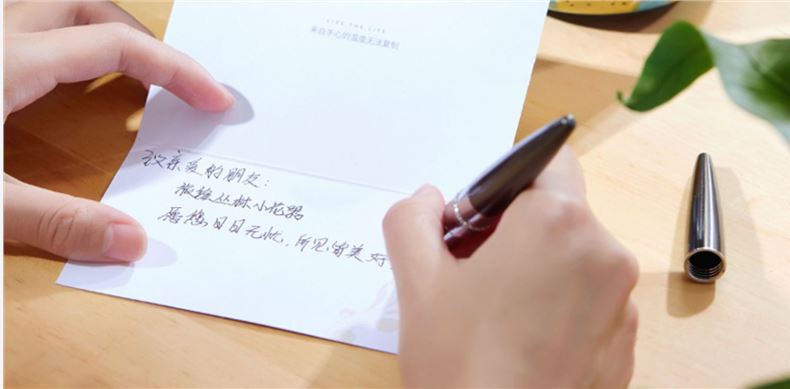 LIVE THE LIFE
来自手心的温度无法复制
致亲爱的朋友:
丛林小花园
愿您日日无忧,所见皆美好